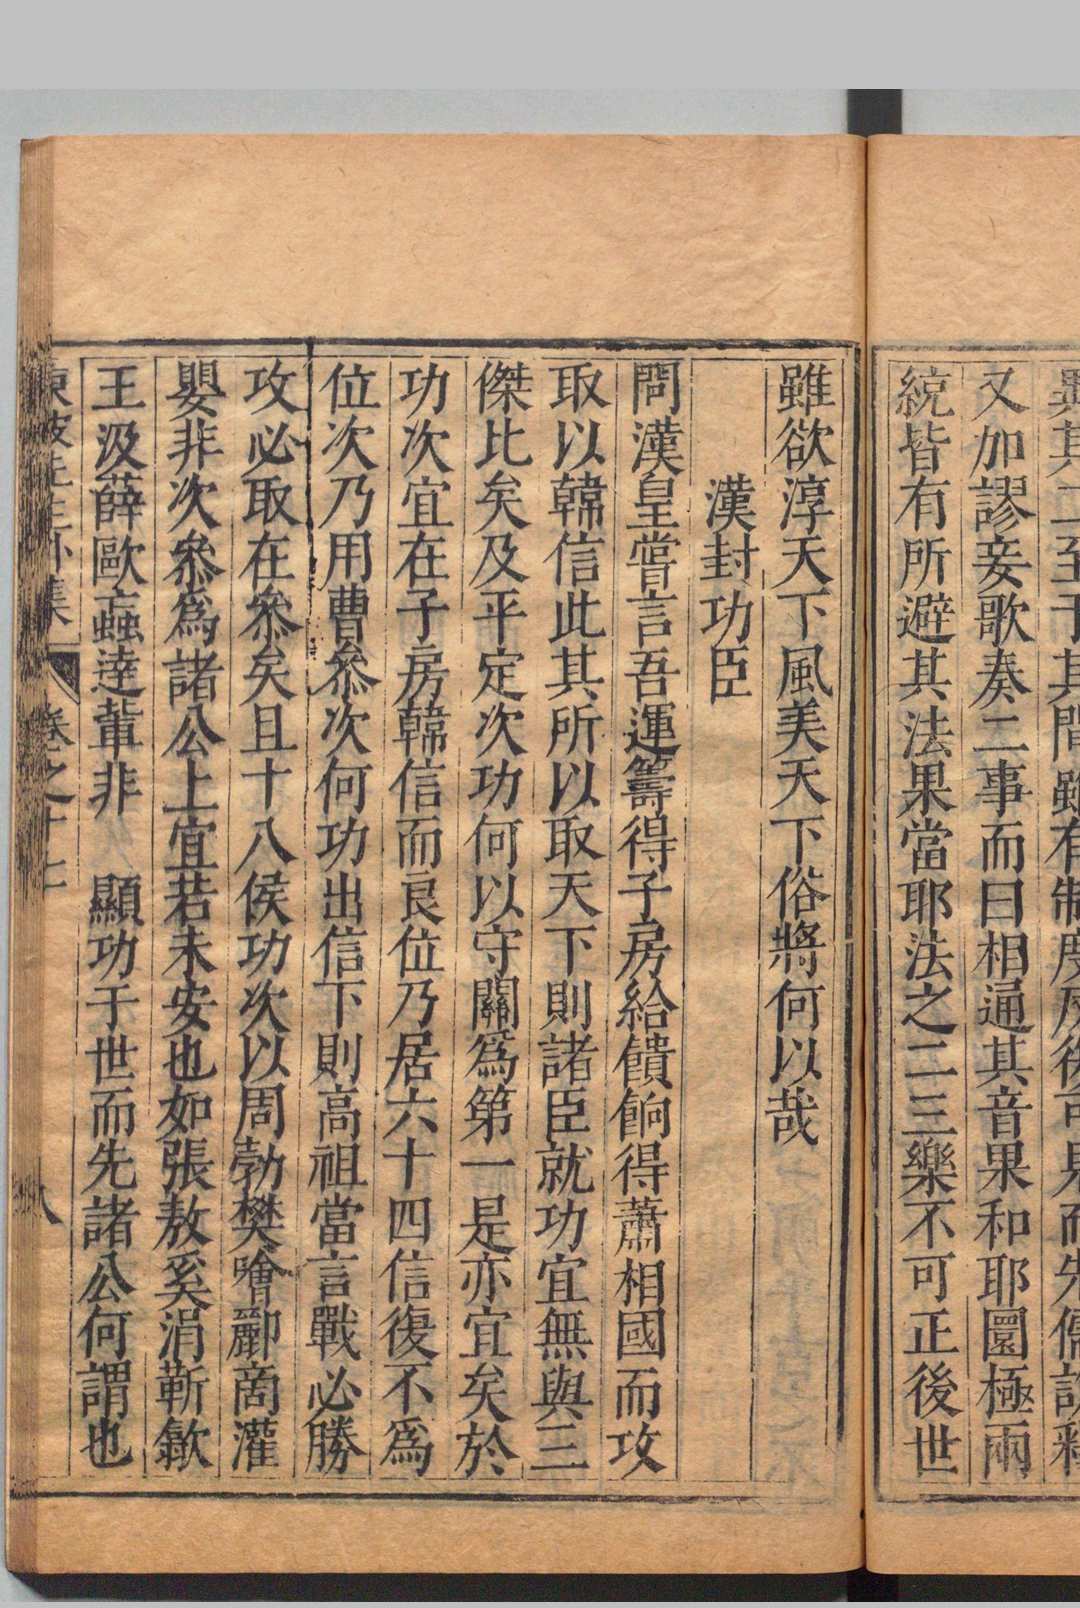 又加謬妄歌奏二事而曰相通其音果和耶圜極兩
統皆有所避其法果當耶法之二三樂不可正後世
雖欲淳天下風美天下俗將何以哉
漢封功臣
問漢皇嘗言吾運籌得子房給饋餉得蕭相國而攻
取以韓信此其所以取天下則諸臣就功宜無與三
傑比矣及平定次功何以守關爲第一是亦宜矣於
功次宜在子房韓信而良位乃居六十四信復不爲
位次乃用曹叅次何功出信下則高祖當言戰必勝
攻必取在叅矣且十八侯功次以周勃樊噲酈商灌
嬰非次叅爲諸公上宜若未安也如張敖奚涓靳歙
王汲薛歐蟲達輩非 顯功于世而先諸公何謂也
東坡先生外集 卷之十七 八